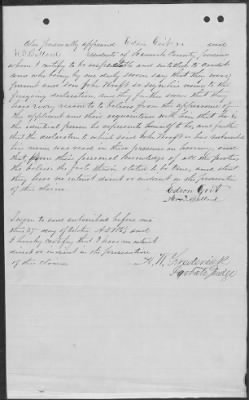 Also personally appeared Edson Goit and
residents of Hancock County
whom I certify to be respectable and entitled to credit
and who being by me duly sworn say that they were
present and saw John sign his name to the
foregoing declaration and they further swear that they
have every reason to believe from the appearance of
the applicant and their acquaintance with him that he is
the identical person he represents himself to be and further
that the declaration to which said John has subscribed
his name was read in their presence in hearing and
that from their personal knowledge of all the parties
the believe the facts therein stated to be true, and that
they have no interest direct or indirect in the prosecution
of this claim
Edson Goit
Sworn to and subscribed before me
this 27 day of October A.D. and
I hereby certify that I have no interest
direct or indirect in the prosecution
of this claim
Probate Judge